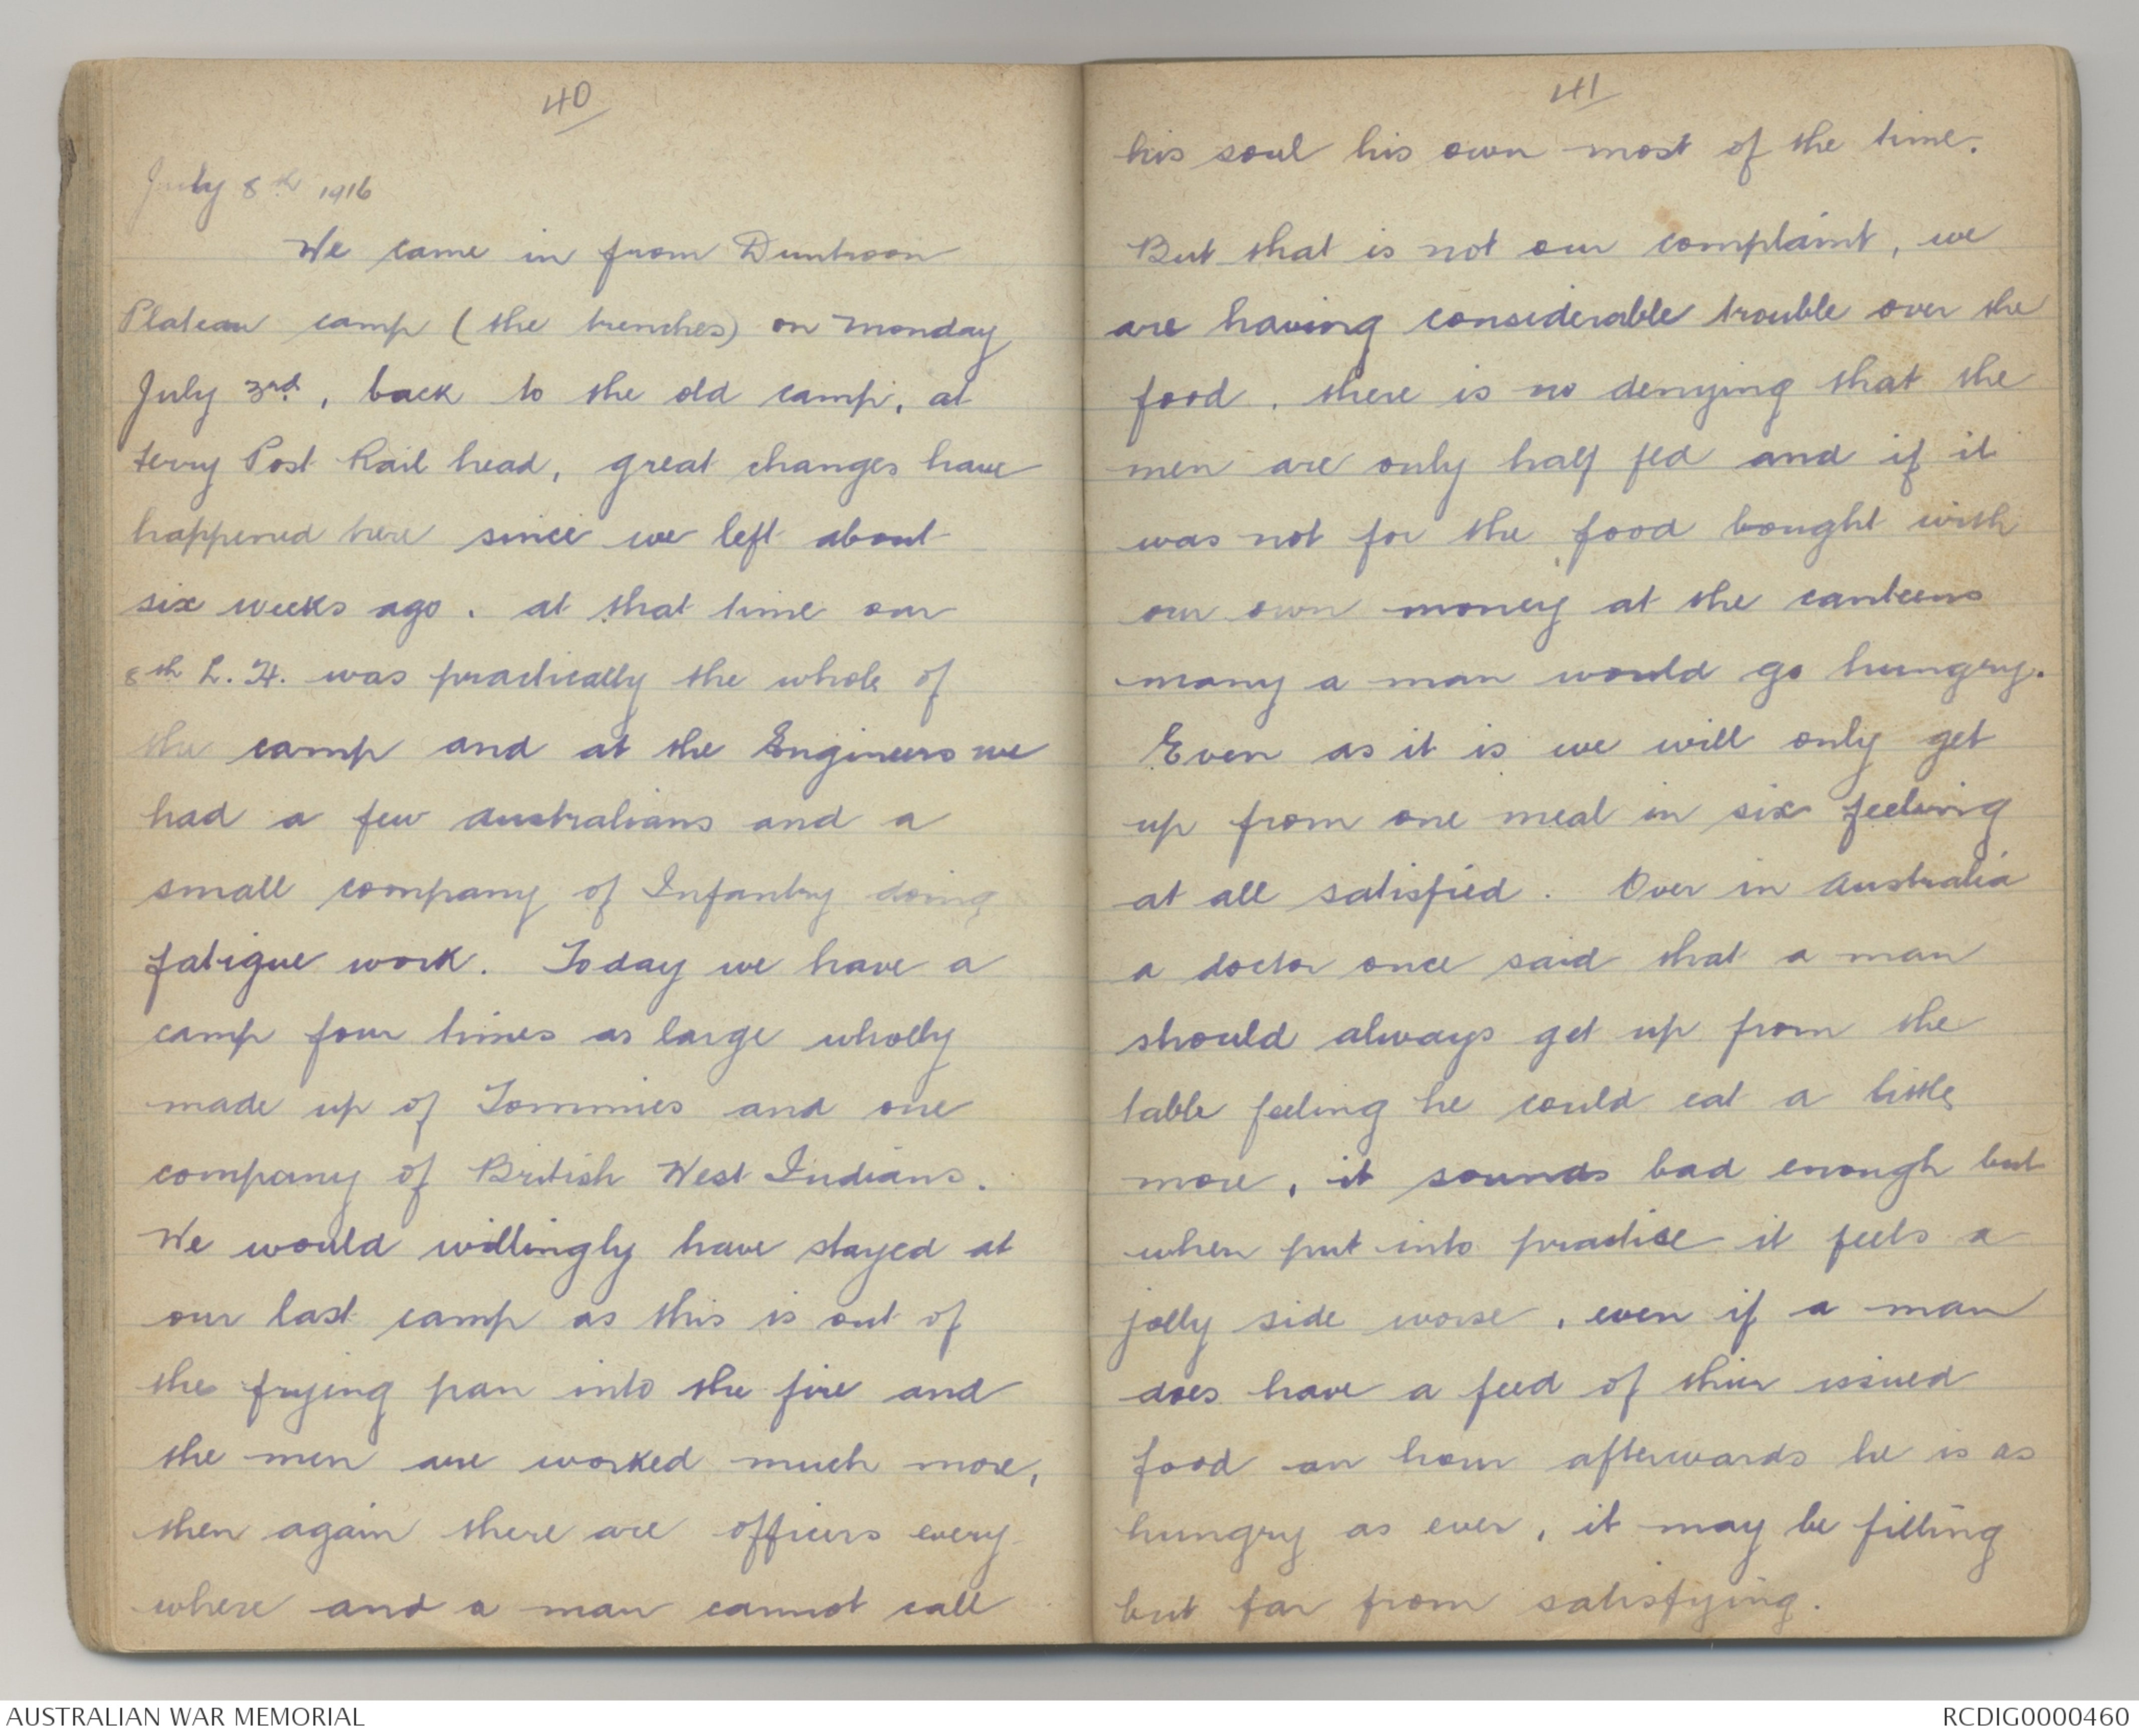 40
July 8th 1916
We came in from Duntroon
Plateau camp (the trenches) on Monday
July 3rd, back to the old camp, at
ferry Post Rail head, great changes have
happened here since we left about
six weeks ago. at that time our
8th L.H. was practically the whole of
the camp and at the Engineers we
had a few Australians and a
small company of Infantry doing
fatigue work. Today we have a
camp four times as large wholly
made up of Tommies and one
company of British West Indians.
We would willingly have stayed at
our last camp as this is out of
the frying pan into the fire and
the men are worked much more,
then again there are officers every
where and a man cannot call
41
his soul his own most of the time.
But that is not our complaint, we
are having considerable trouble over the
food, there is no denying that the
men are only half fed and if it
was not for the food bought with
our own money at the canteens
many a man would go hungry.
Even as it is we will only get
up from one meal in six feeling
at all satisfied. Over in Australia
a doctor once said that a man
should always get up from the
table feeling he could eat a little
more, it sounds bad enough but
when put into practise it feels a
jolly side worse, even if a man
does have a feed of thier issued
food an hour afterwards he is as
hungry as ever, it may be filling
but far from satisfying.
AUSTRALIAN WAR MEMORIAL
RCDIG0000460